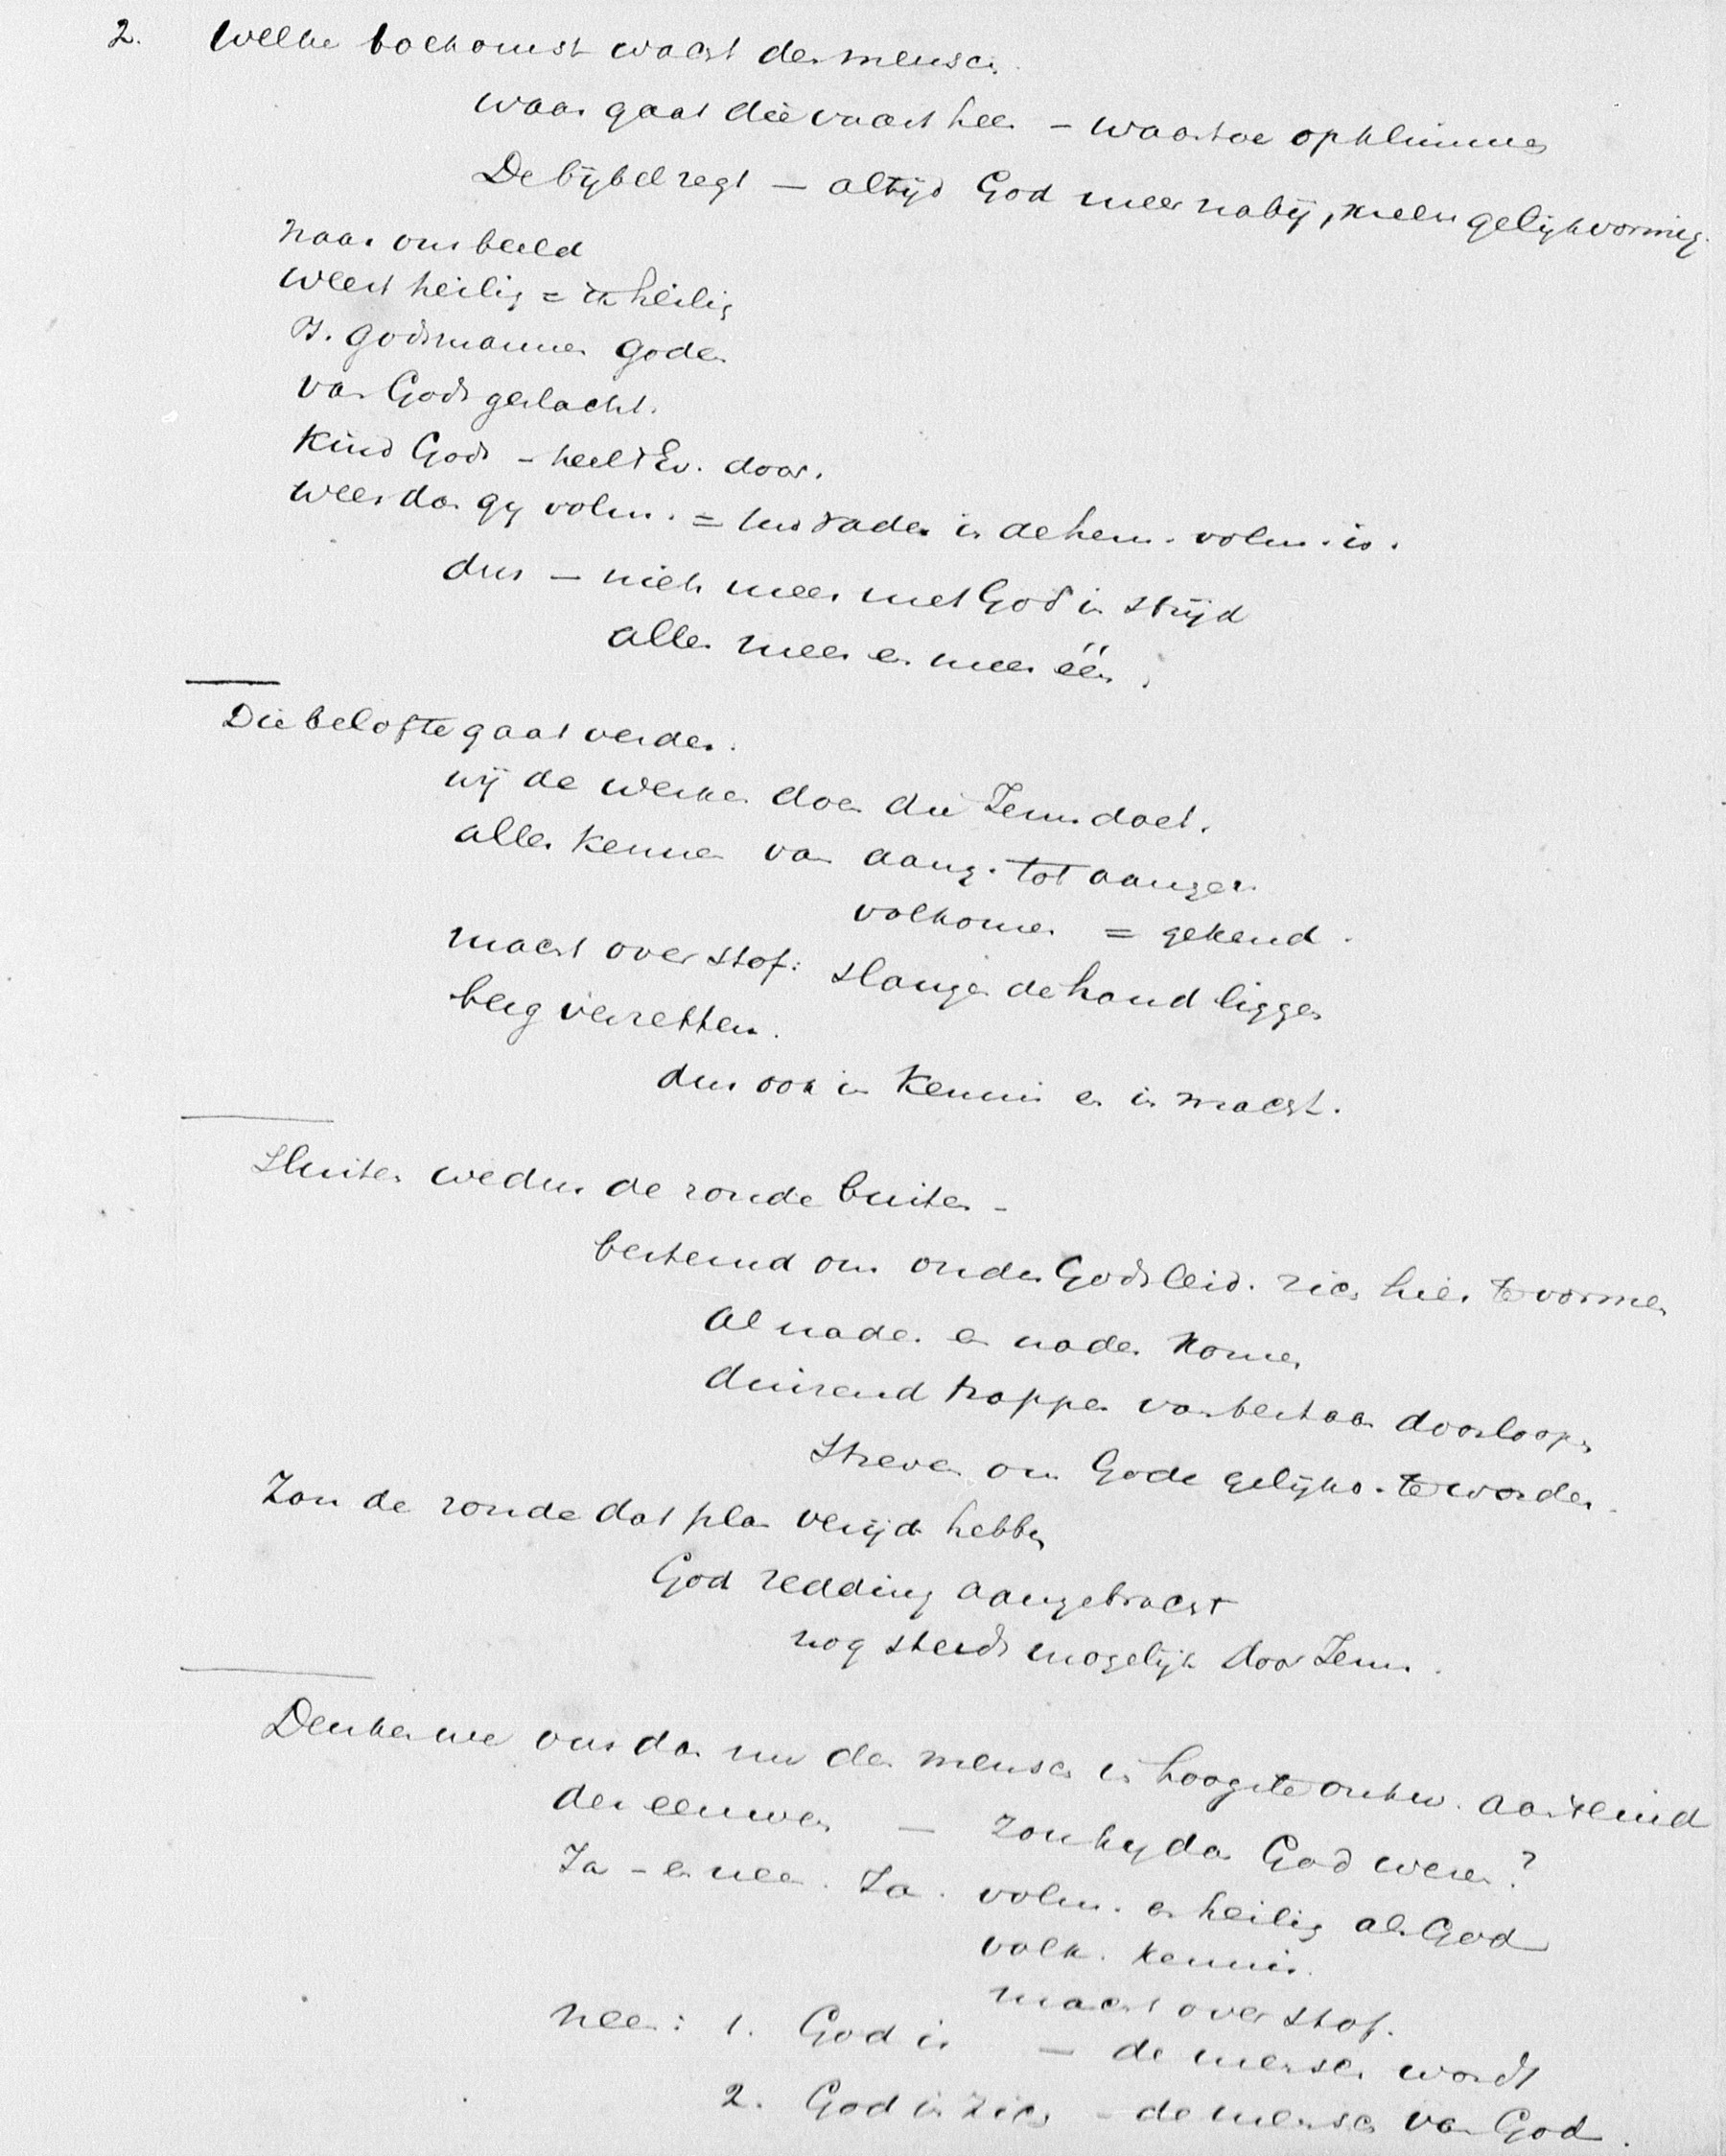 2. Welke toekomst wacht den mensch.
waar gaat die vaart heen – waartoe opklimmen
De bijbel zegt – altijd God meer nabij, meer gelijkvormig.
naar ons beeld
weest heilig = ik heilig
I. godsmannen goden
van Gods geslacht.
Kind Gods – heel 't Ev. door.
wees dan gij volm. = uw Vader in de hem. volm. is.
dus – niet meer met God in strijd
alles meer en meer één.
Die belofte gaat verder.
wij de werken doen die Jezus doet.
alles kennen van aang. tot aangez.
volkomen = gekend.
macht over stof: slangen de hand liggen
berg verzetten.
dus ook in kennis en in macht.
Sluiten we dus de zonde buiten –
bestemd om onder Gods leid. zich hier te vormen
al nader en nader komen
duizend trappen van bestaan doorloopen
Streven om Gode gelijkv. te worden.
Zou de zonde dat plan verijd. hebben
God redding aangebracht
nog steeds mogelijk door Jezus.
Denken we ons dan nu den mensch in hoogste ontw. aan 't eind
der eeuwen – zou hij dan God wezen?
Ja – en neen. Ja. volm. en heilig als God
volk. kennis.
macht over stof.
neen: 1. God is – de mensch wordt
2. God in zich – de mensch van God.